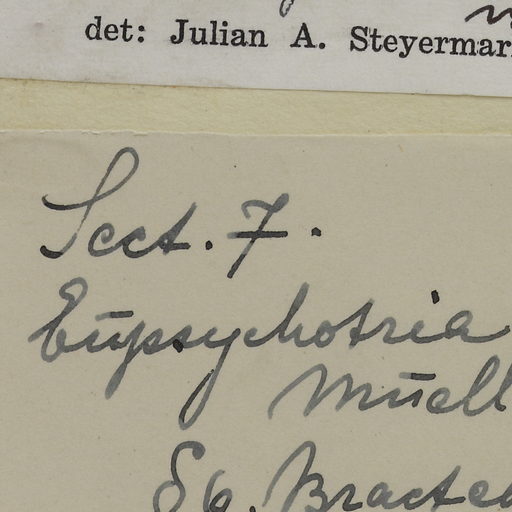 det: Julian A. Steyermar
Sect. 7.
Eūpsychotria
Mūell
§6. Bractea